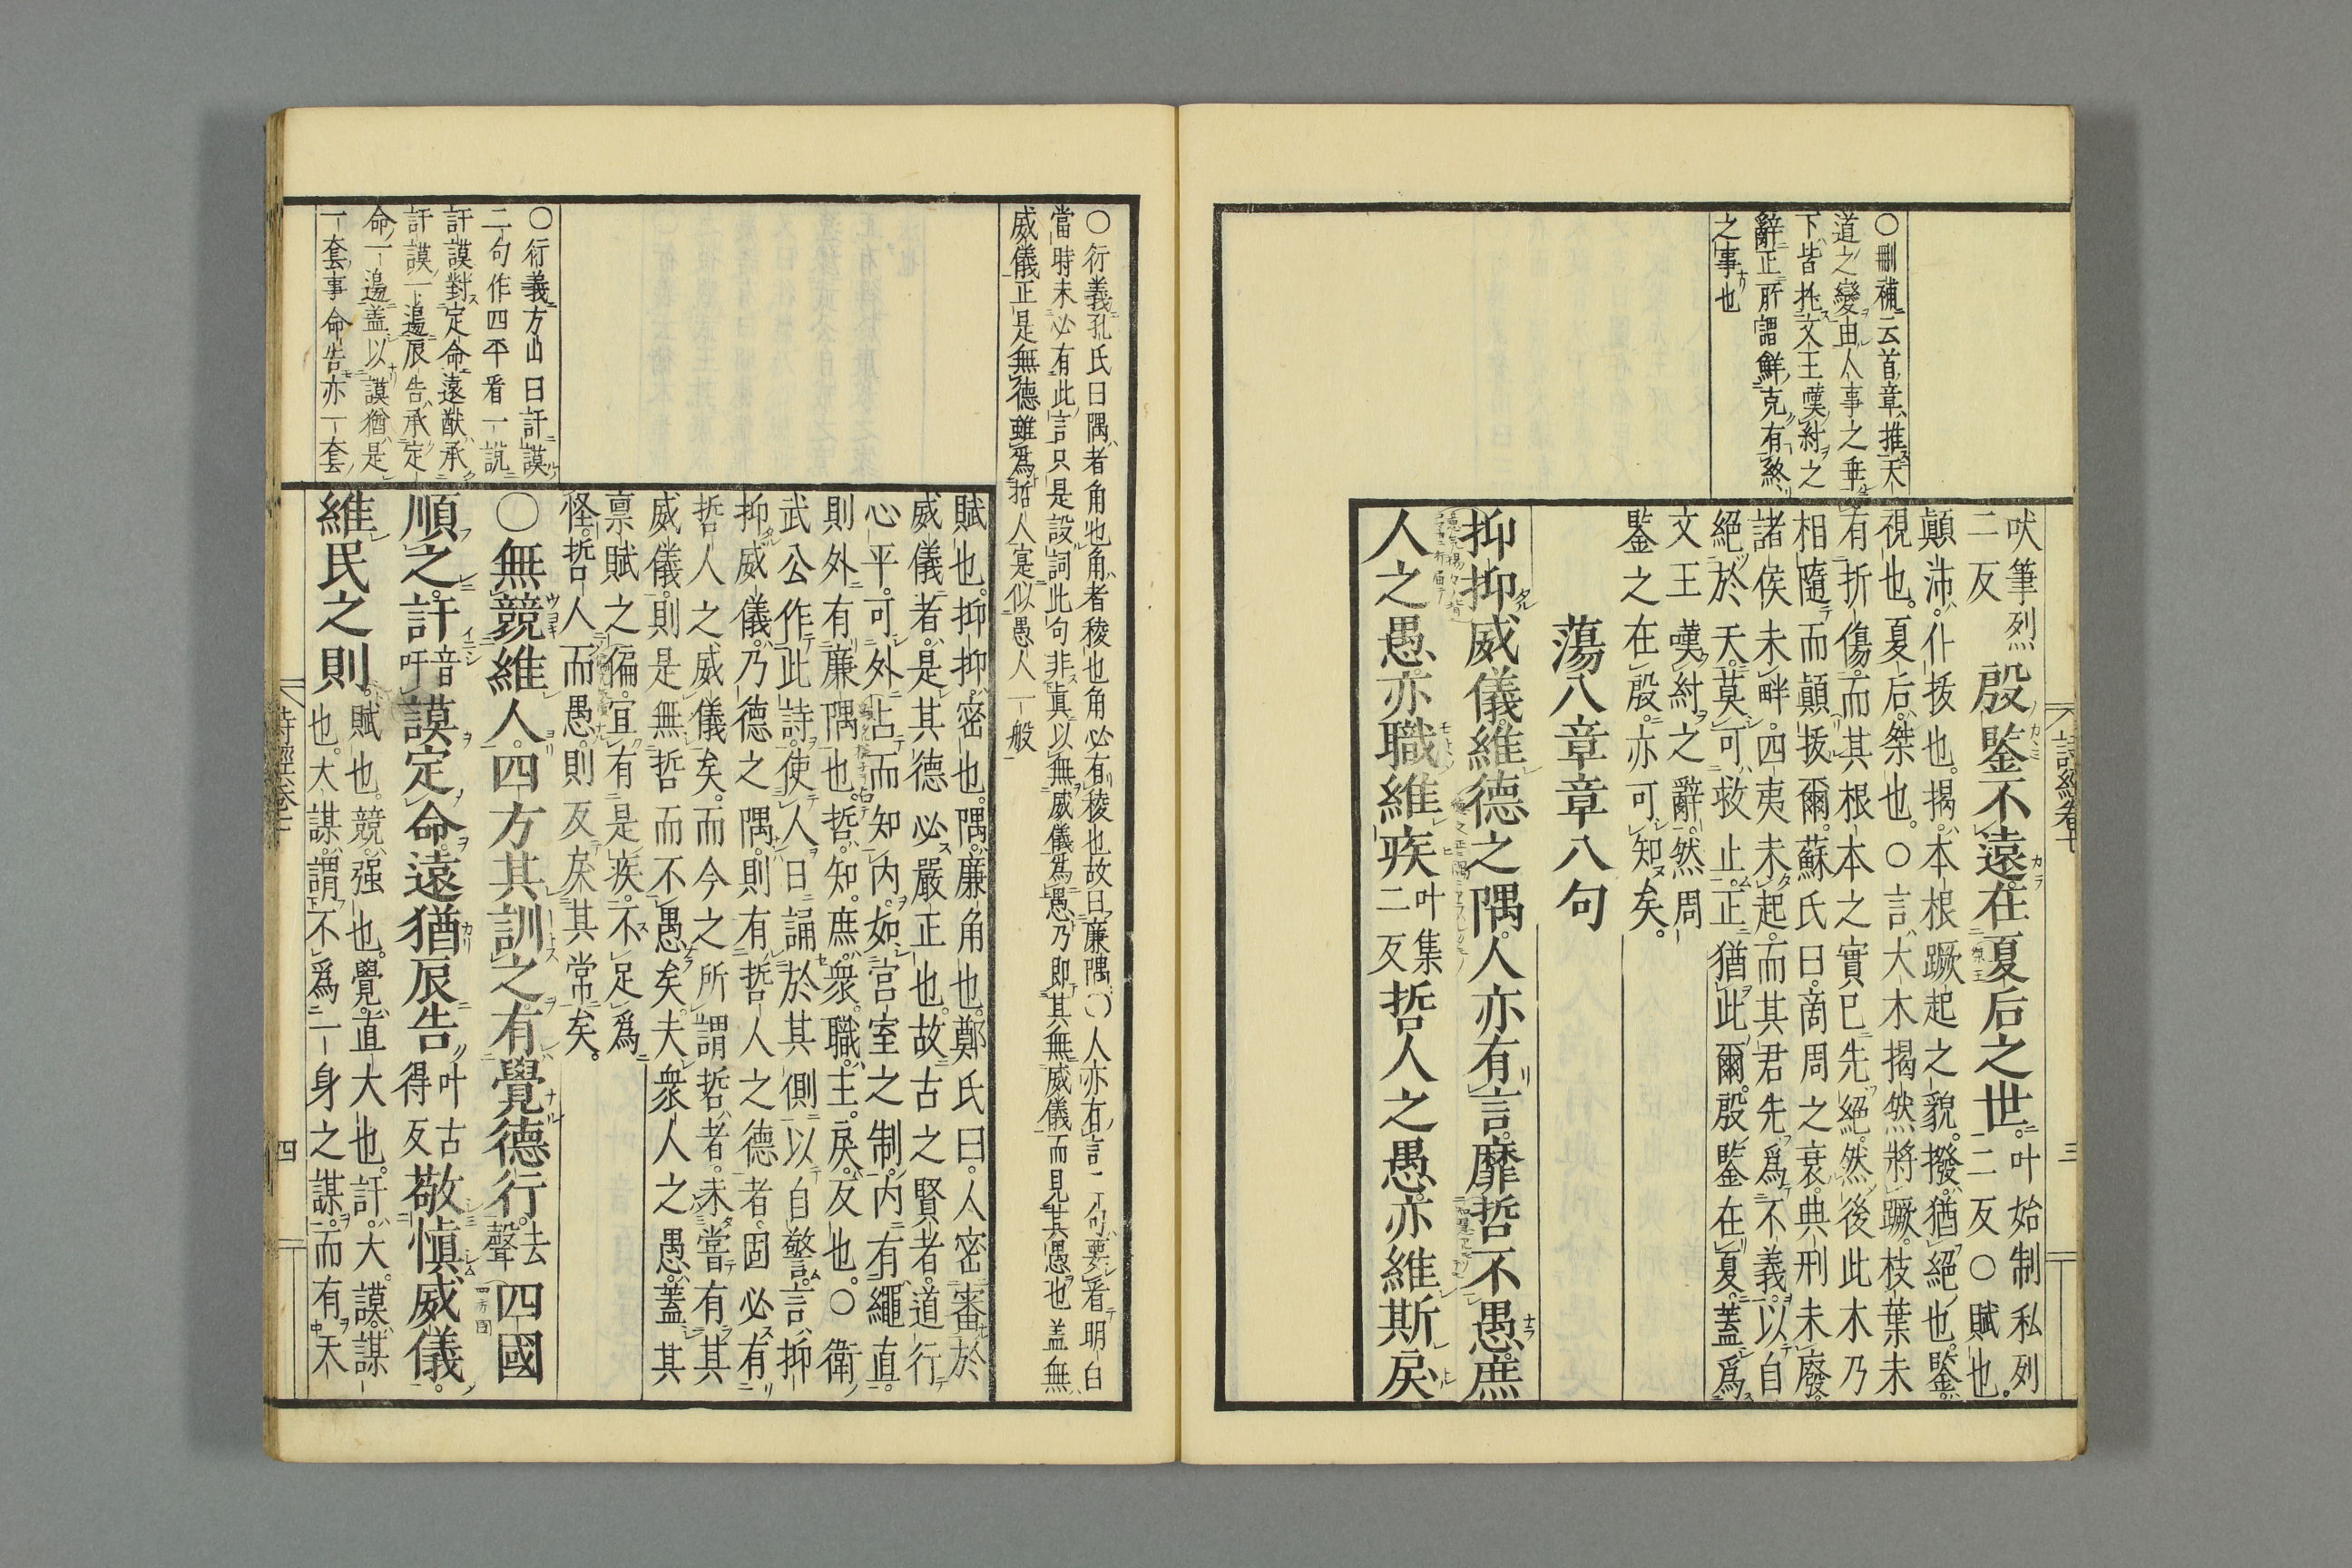 詩經卷七
三
〇刪補云首章推天
道之變由人事之乖
下皆托文王嘆紂之
辭正所謂鮮克有終
之事也
吠筆烈
二反
殷鑒不遠在夏后之世
叶始制私列
二反〇賦也
顛沛仆拔也揭本根蹶起之貌撥猶絕也鑒
視也夏后桀也〇言大木揭然將蹶枝葉未
有折傷而其根本之實已先絕然後此木乃
相隨而顛拔爾蘇氏曰商周之衰典刑未廢
諸侯未畔四夷未起而其君先爲不義以自
絕於天莫可救止正猶此爾殷鑒在夏蓋爲
文王嘆紂之辭然周
鑒之在殷亦可知矣
蕩八章章八句
抑抑威儀維德之隅人亦有言靡哲不愚庶
人之愚亦職維疾
叶集
二反
哲人之愚亦維斯戾
〇衍義孔氏曰隅者角也角者稜也角必有稜也故曰廉隅〇人亦有言一句要看明白
當時未必有此言只是設詞此句非眞以無威儀爲愚乃即其無威儀而見其愚也盖無
威儀正是無德雖爲哲人寔似愚人一般
賦也抑抑密也隅廉角也鄭氏曰人密審於
威儀者是其德必嚴正也故古之賢者道行
心平可外占而知內如宮室之制內有繩直
則外有廉隅也哲知庶衆職主戾反也〇衛
武公作此詩使人日誦於其側以自警言抑
抑威儀乃德之隅則有哲人之德者固必有
哲人之威儀矣而今之所謂哲者未嘗有其
威儀則是無哲而不愚矣夫衆人之愚蓋其
禀賦之偏宜有是疾不足爲
怪哲人而愚則反戾其常矣
〇衍義方山曰訏謨
二句作四平看一説
訏謨對定命遠猷承
訏謨一邊辰告承定
命一邊盖以謨猶是
一套事命告亦一套
〇無競維人四方其訓之有覺德行
去
聲
四國
順之訏
音
吁
謨定命遠猶辰告
叶古
得反
敬愼威儀
維民之則
賦也競强也覺直大也訏大謨謀
也大謀謂不爲一身之謀而有天
四